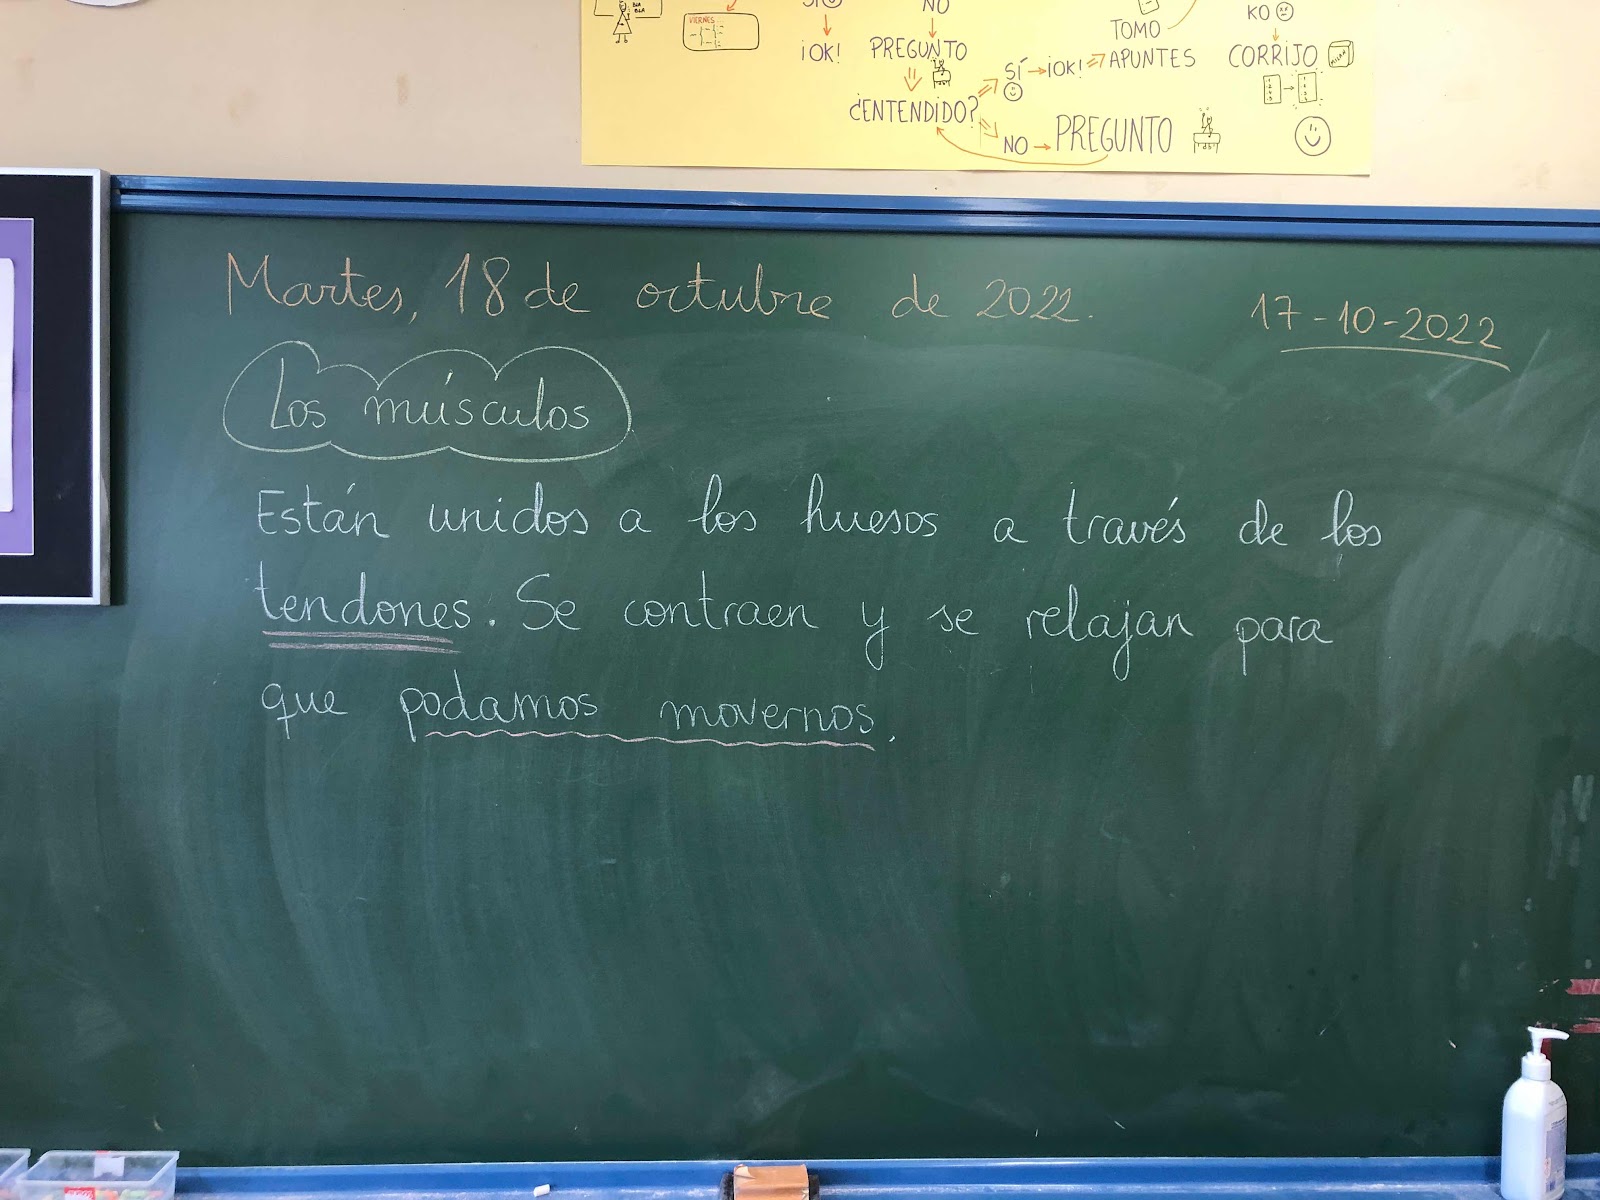 BLA
BLA
VIERNES
SÍ
¡OK!
NO
PREGUNTO
¿ENTENDIDO?
SÍ
¡OK!
TOMO
APUNTES
NO
PREGUNTO
KO
CORRIJO
Martes, 18 de octubre de 2022.
17-10-2022
Los músculos
Están unidos a los huesos a través de los
tendones. Se contraen y se relajan para
que podamos movernos.